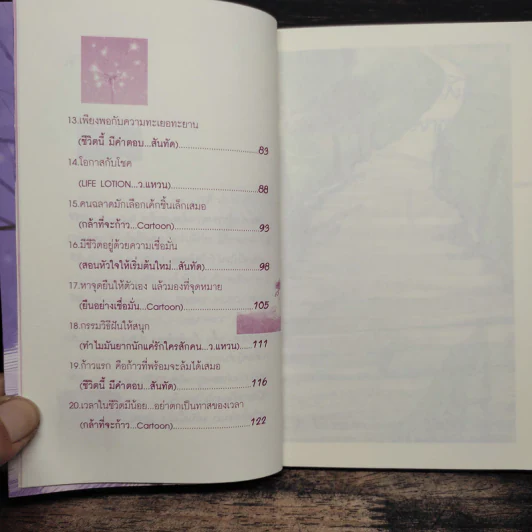 13.เพียงพอกับความทะเยอทะยาน
(ชีวิตนี้ มีคำตอบ...สันทัด)..............................83
14.โอกาสกับโชค
(LIFE LOTION...ว.แหวน)..............................88
15.คนฉลาดมักเลือกเค้กชิ้นเล็กเสมอ
(กล้าที่จะก้าว...Cartoon)..............................93
16.มีชีวิตอยู่ด้วยความเชื่อมั่น
(สอนหัวใจให้เริ่มต้นใหม่...สันทัด)....................98
17.หาจุดยืนให้ตัวเอง แล้วมองที่จุดหมาย
(ยืนอย่างเชื่อมั่น...Cartoon)..........................105
18.กรรมวิธีฝันให้สนุก
(ทำไมมันยากนักแค่รักใครสักคน...ว.แหวน).....111
19.ก้าวแรก คือก้าวที่พร้อมจะล้มได้เสมอ
(ชีวิตนี้ มีคำตอบ...สันทัด)............................116
20.เวลาในชีวิตมีน้อย...อย่าตกเป็นทาสของเวลา
(กล้าที่จะก้าว...Cartoon)............................122